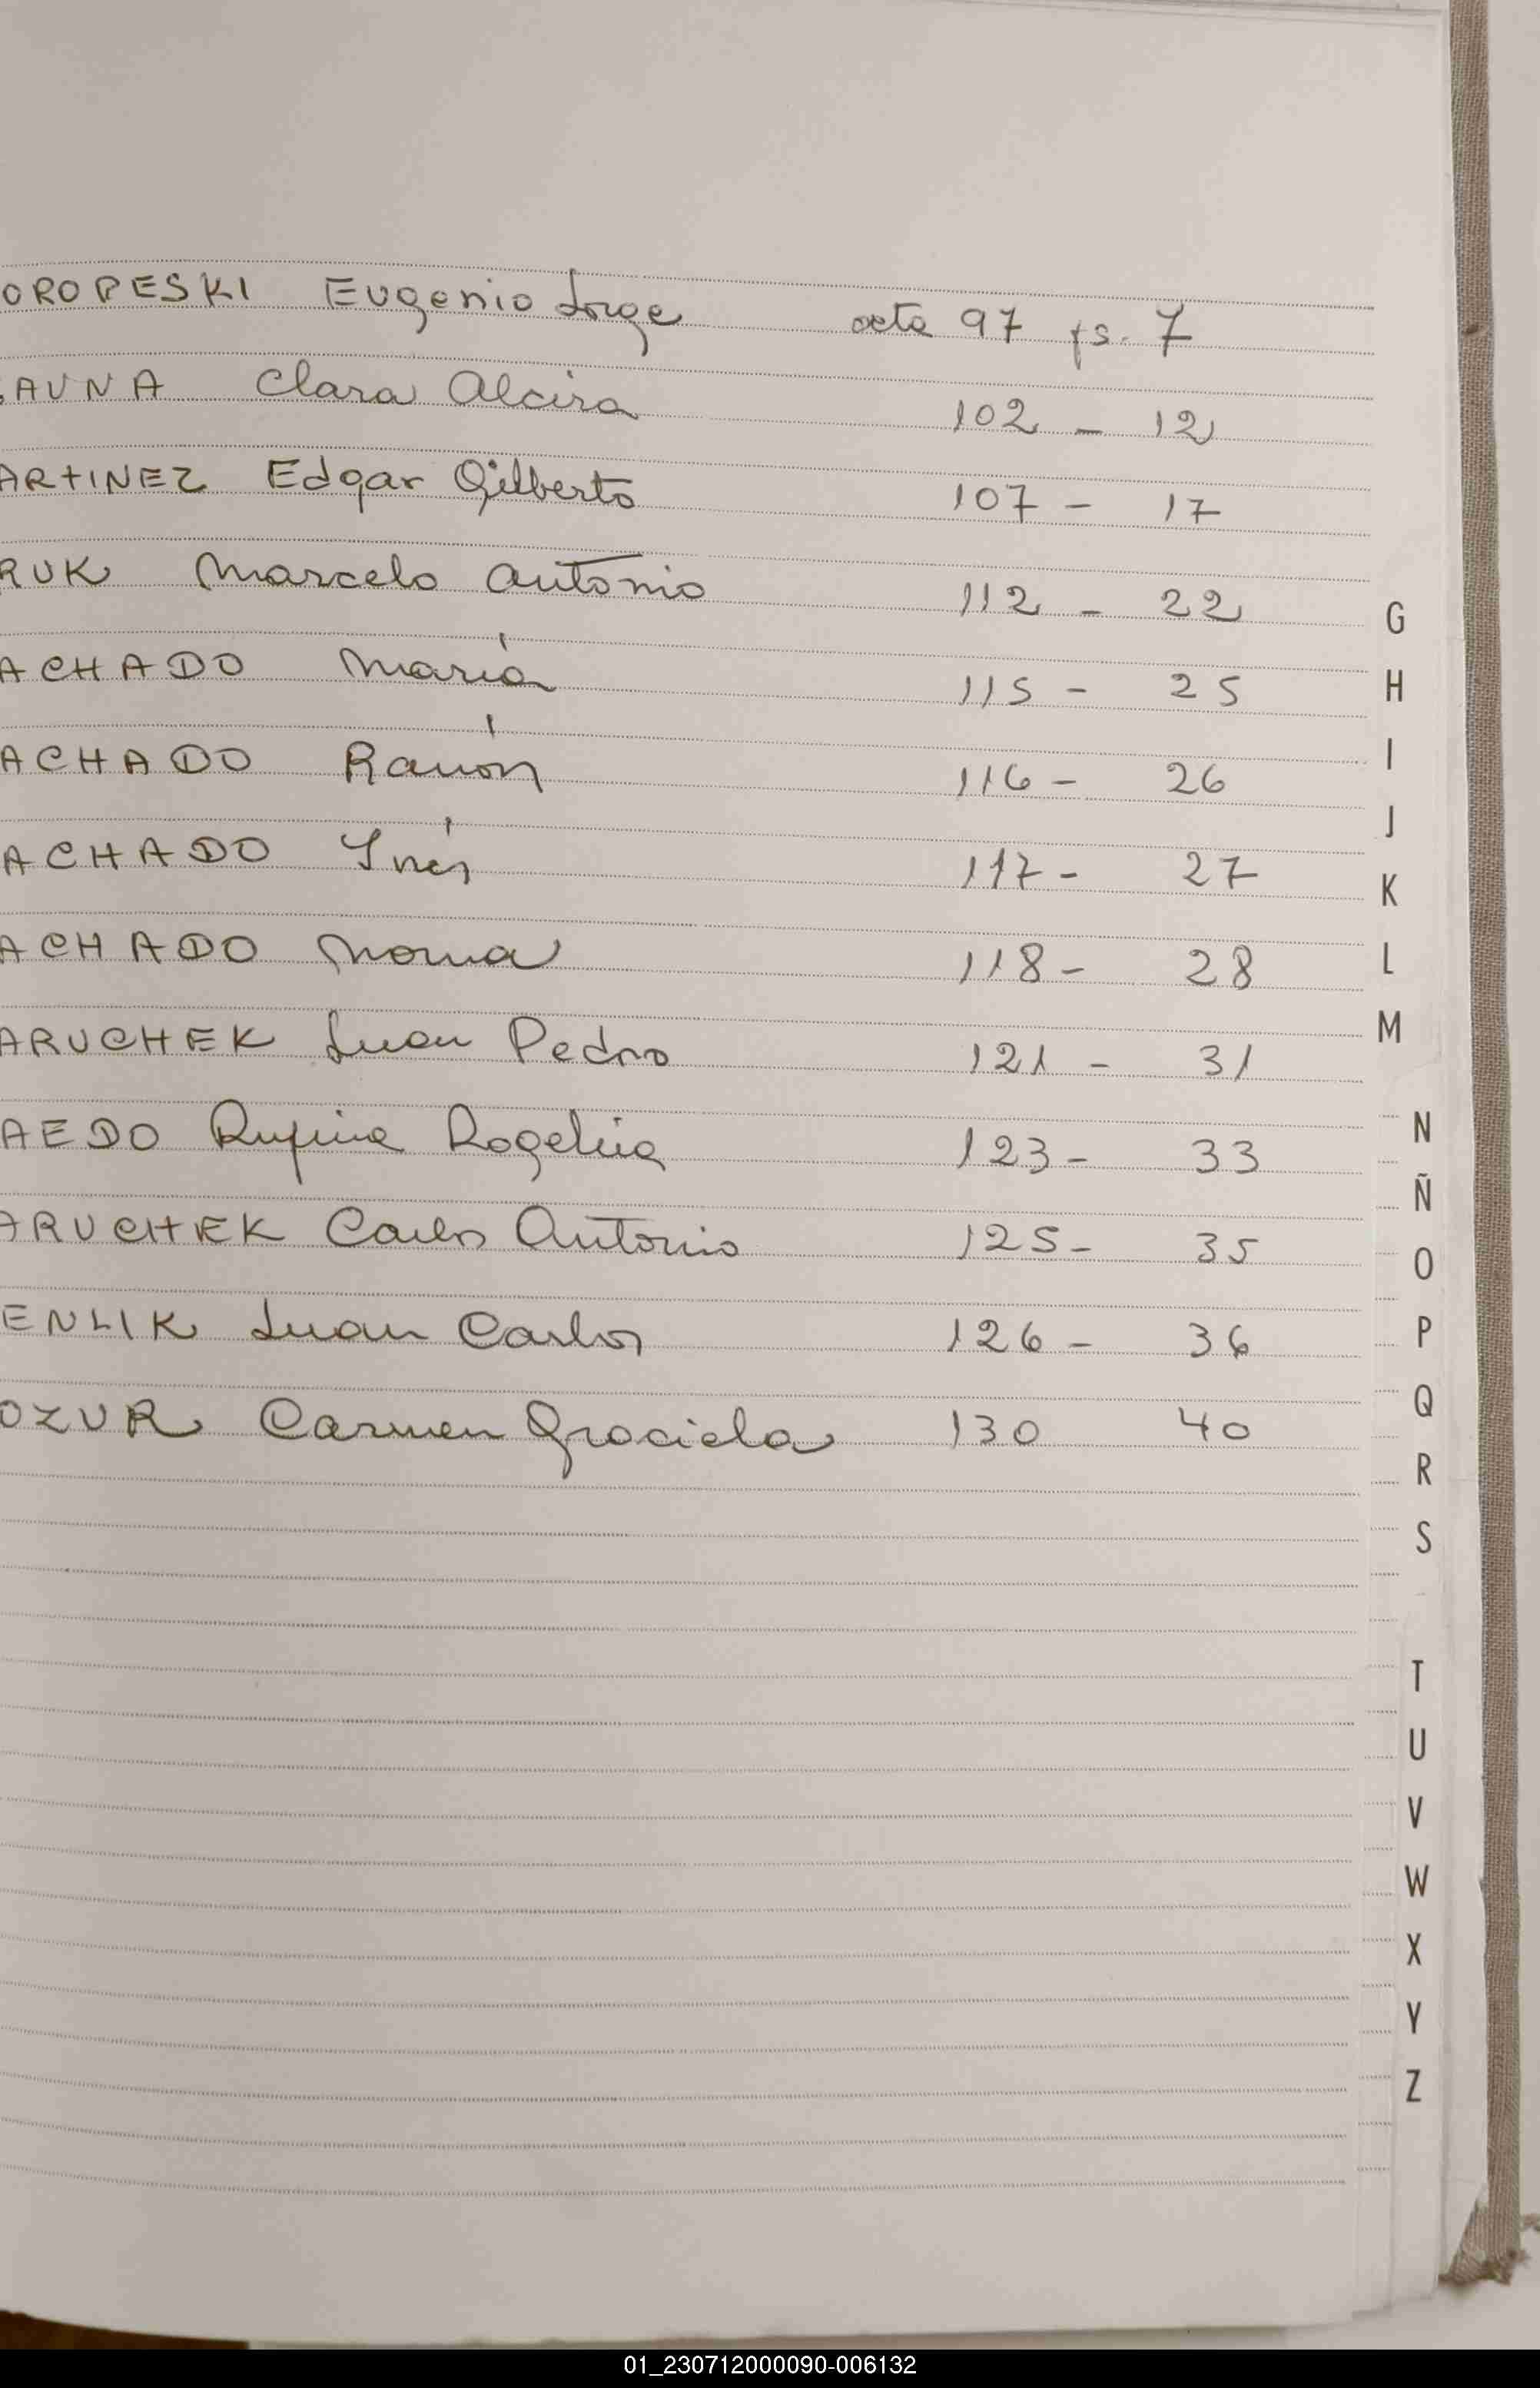 OROPESKI Eugenio Jorge acta 97 fs. 7
AUNA Clara Alcira 102 - 12
ARTINEZ Edgar Gilberto 107 - 17
RUK Marcelo Antonio 112 - 22
ACHADO María 115 - 25
ACHADO Ramón 116 - 26
ACHADO Inés 117 - 27
ACHADO Norma 118 - 28
ARUCHEK Juan Pedro 121 - 31
AEDO Rufina Rogelia 123 - 33
ARUCHEK Carlos Antonio 125 - 35
ENLIK Juan Carlos 126 - 36
OZUR Carmen Graciela 130 40
G
H
I
J
K
L
M
N
Ñ
O
P
Q
R
S
T
U
V
W
X
Y
Z
01_230712000090-006132